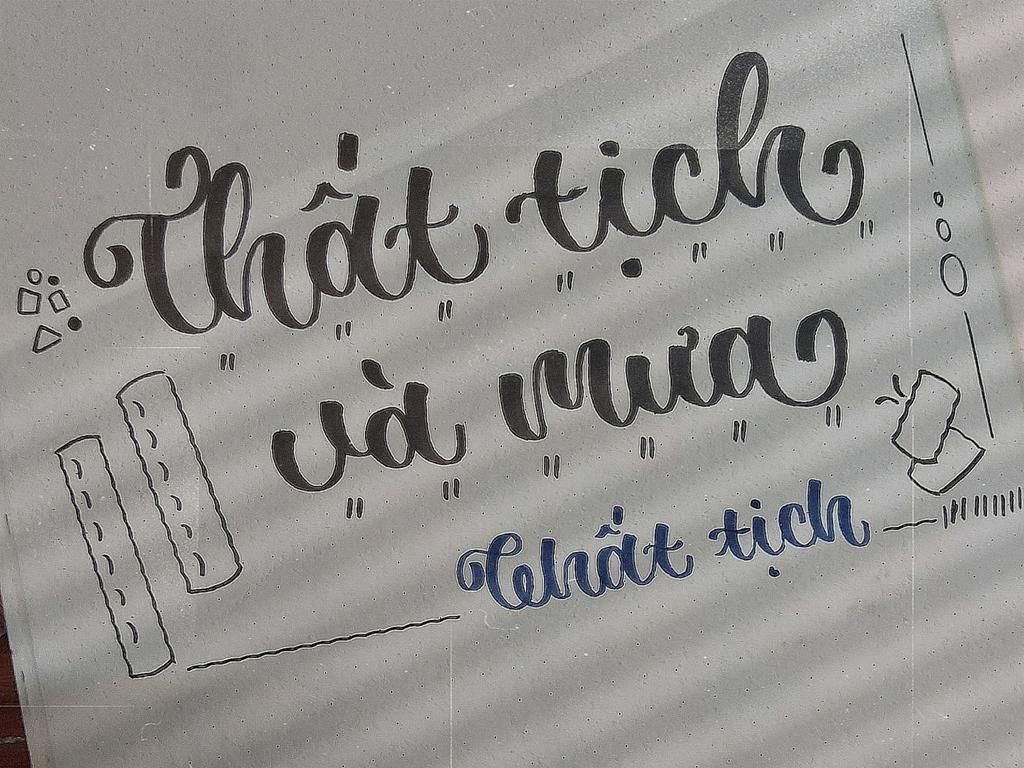 Thất tịch
và mưa
Thất tịch